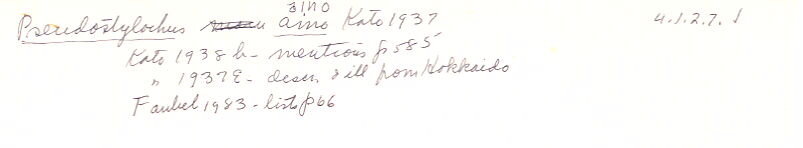 aino
Pseudostylochus aino Kato 1937 4.1.2.7.1
Kato 1938b - mentions p585
" 1937E - descr & ill from Hokkaido
Faubel 1983 - lists p66